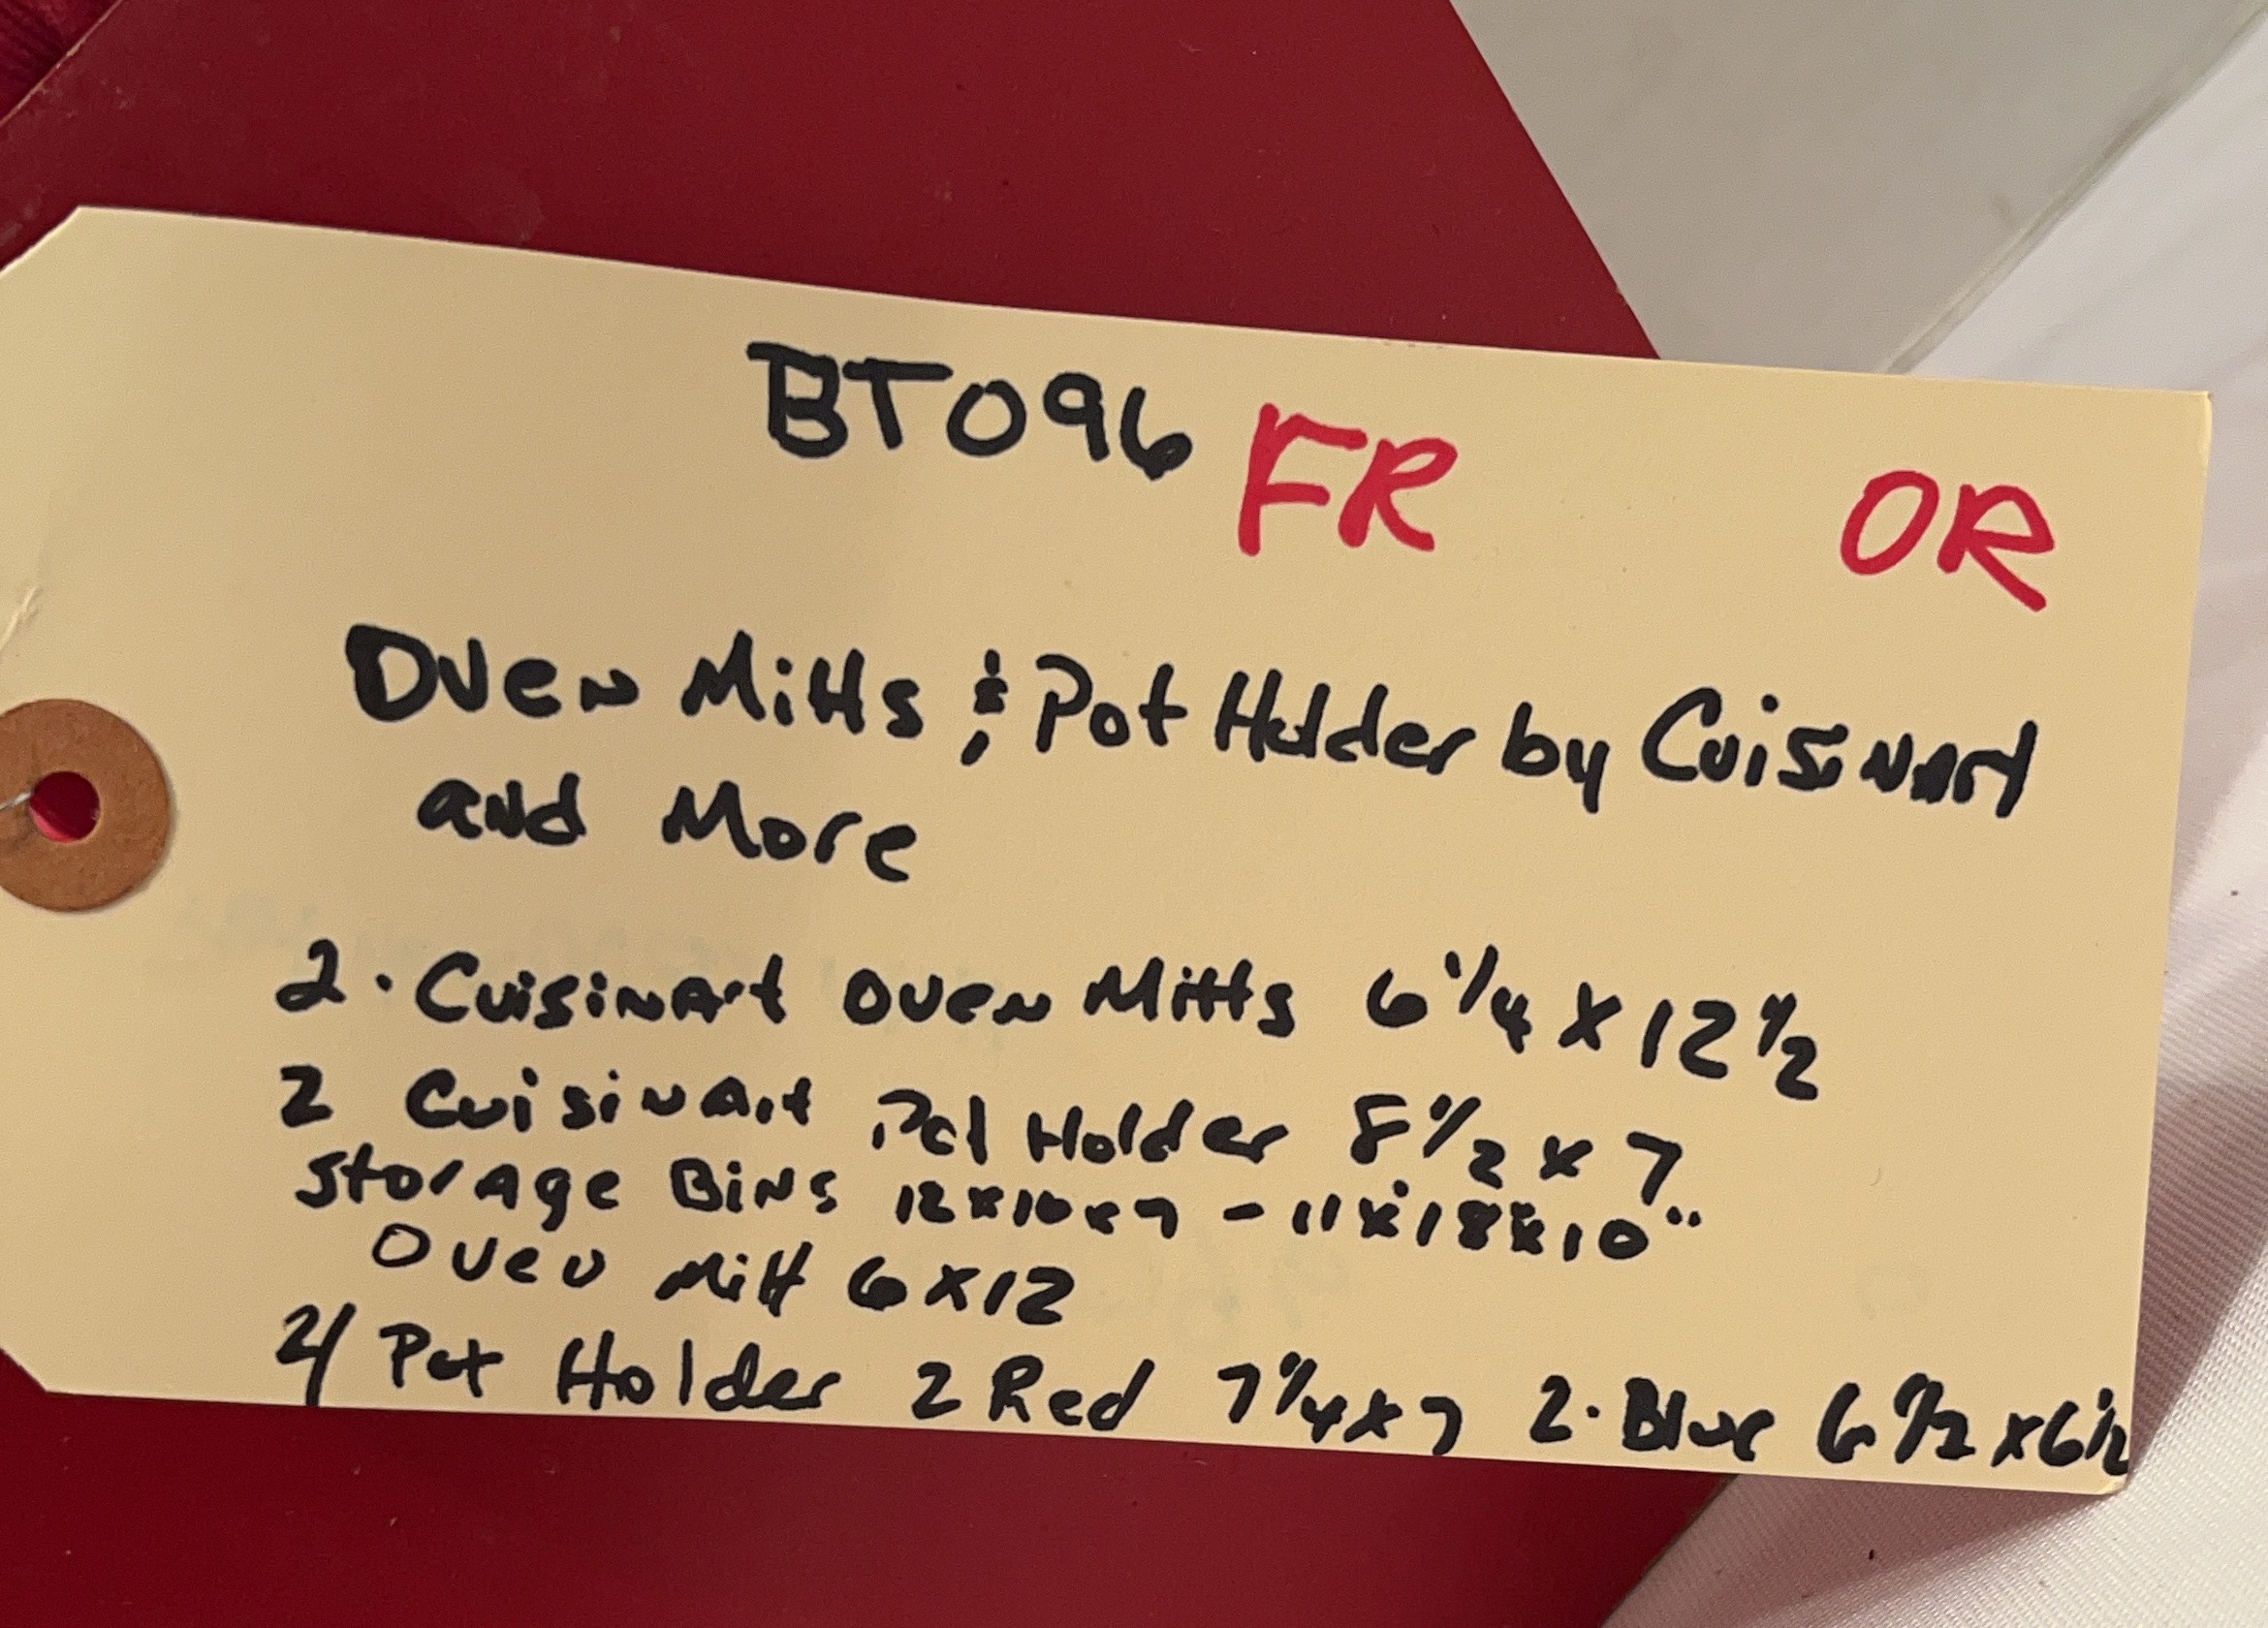 BT096 FR OR
Oven Mitts & Pot Holder by Cuisinart
and More
2 · Cuisinart Oven Mitts 6 1/4 x 12 1/2
2 Cuisinart Pot Holder 8 1/2 x 7
Storage Bins 12x10x7 - 11x18x10"
Oven Mitt 6x12
4 Pot Holder 2 Red 7 1/4 x 7 2 · Blue 6 1/2 x 6 1/2